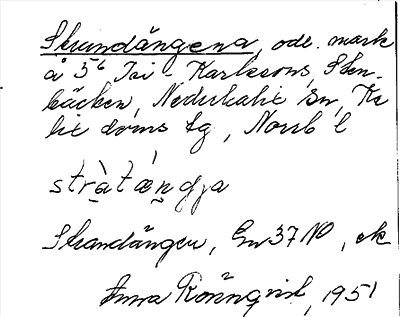 Strandängena, ode. mark
å 5⁶ Isi-Karlssons, Sten-
bäcken, Nederkalix sn, Ka
lix doms tg, Norrb l
stràtæ̀ndja
Strandängen, Em 37 NO, ek
Anna Rönnqvist, 1951